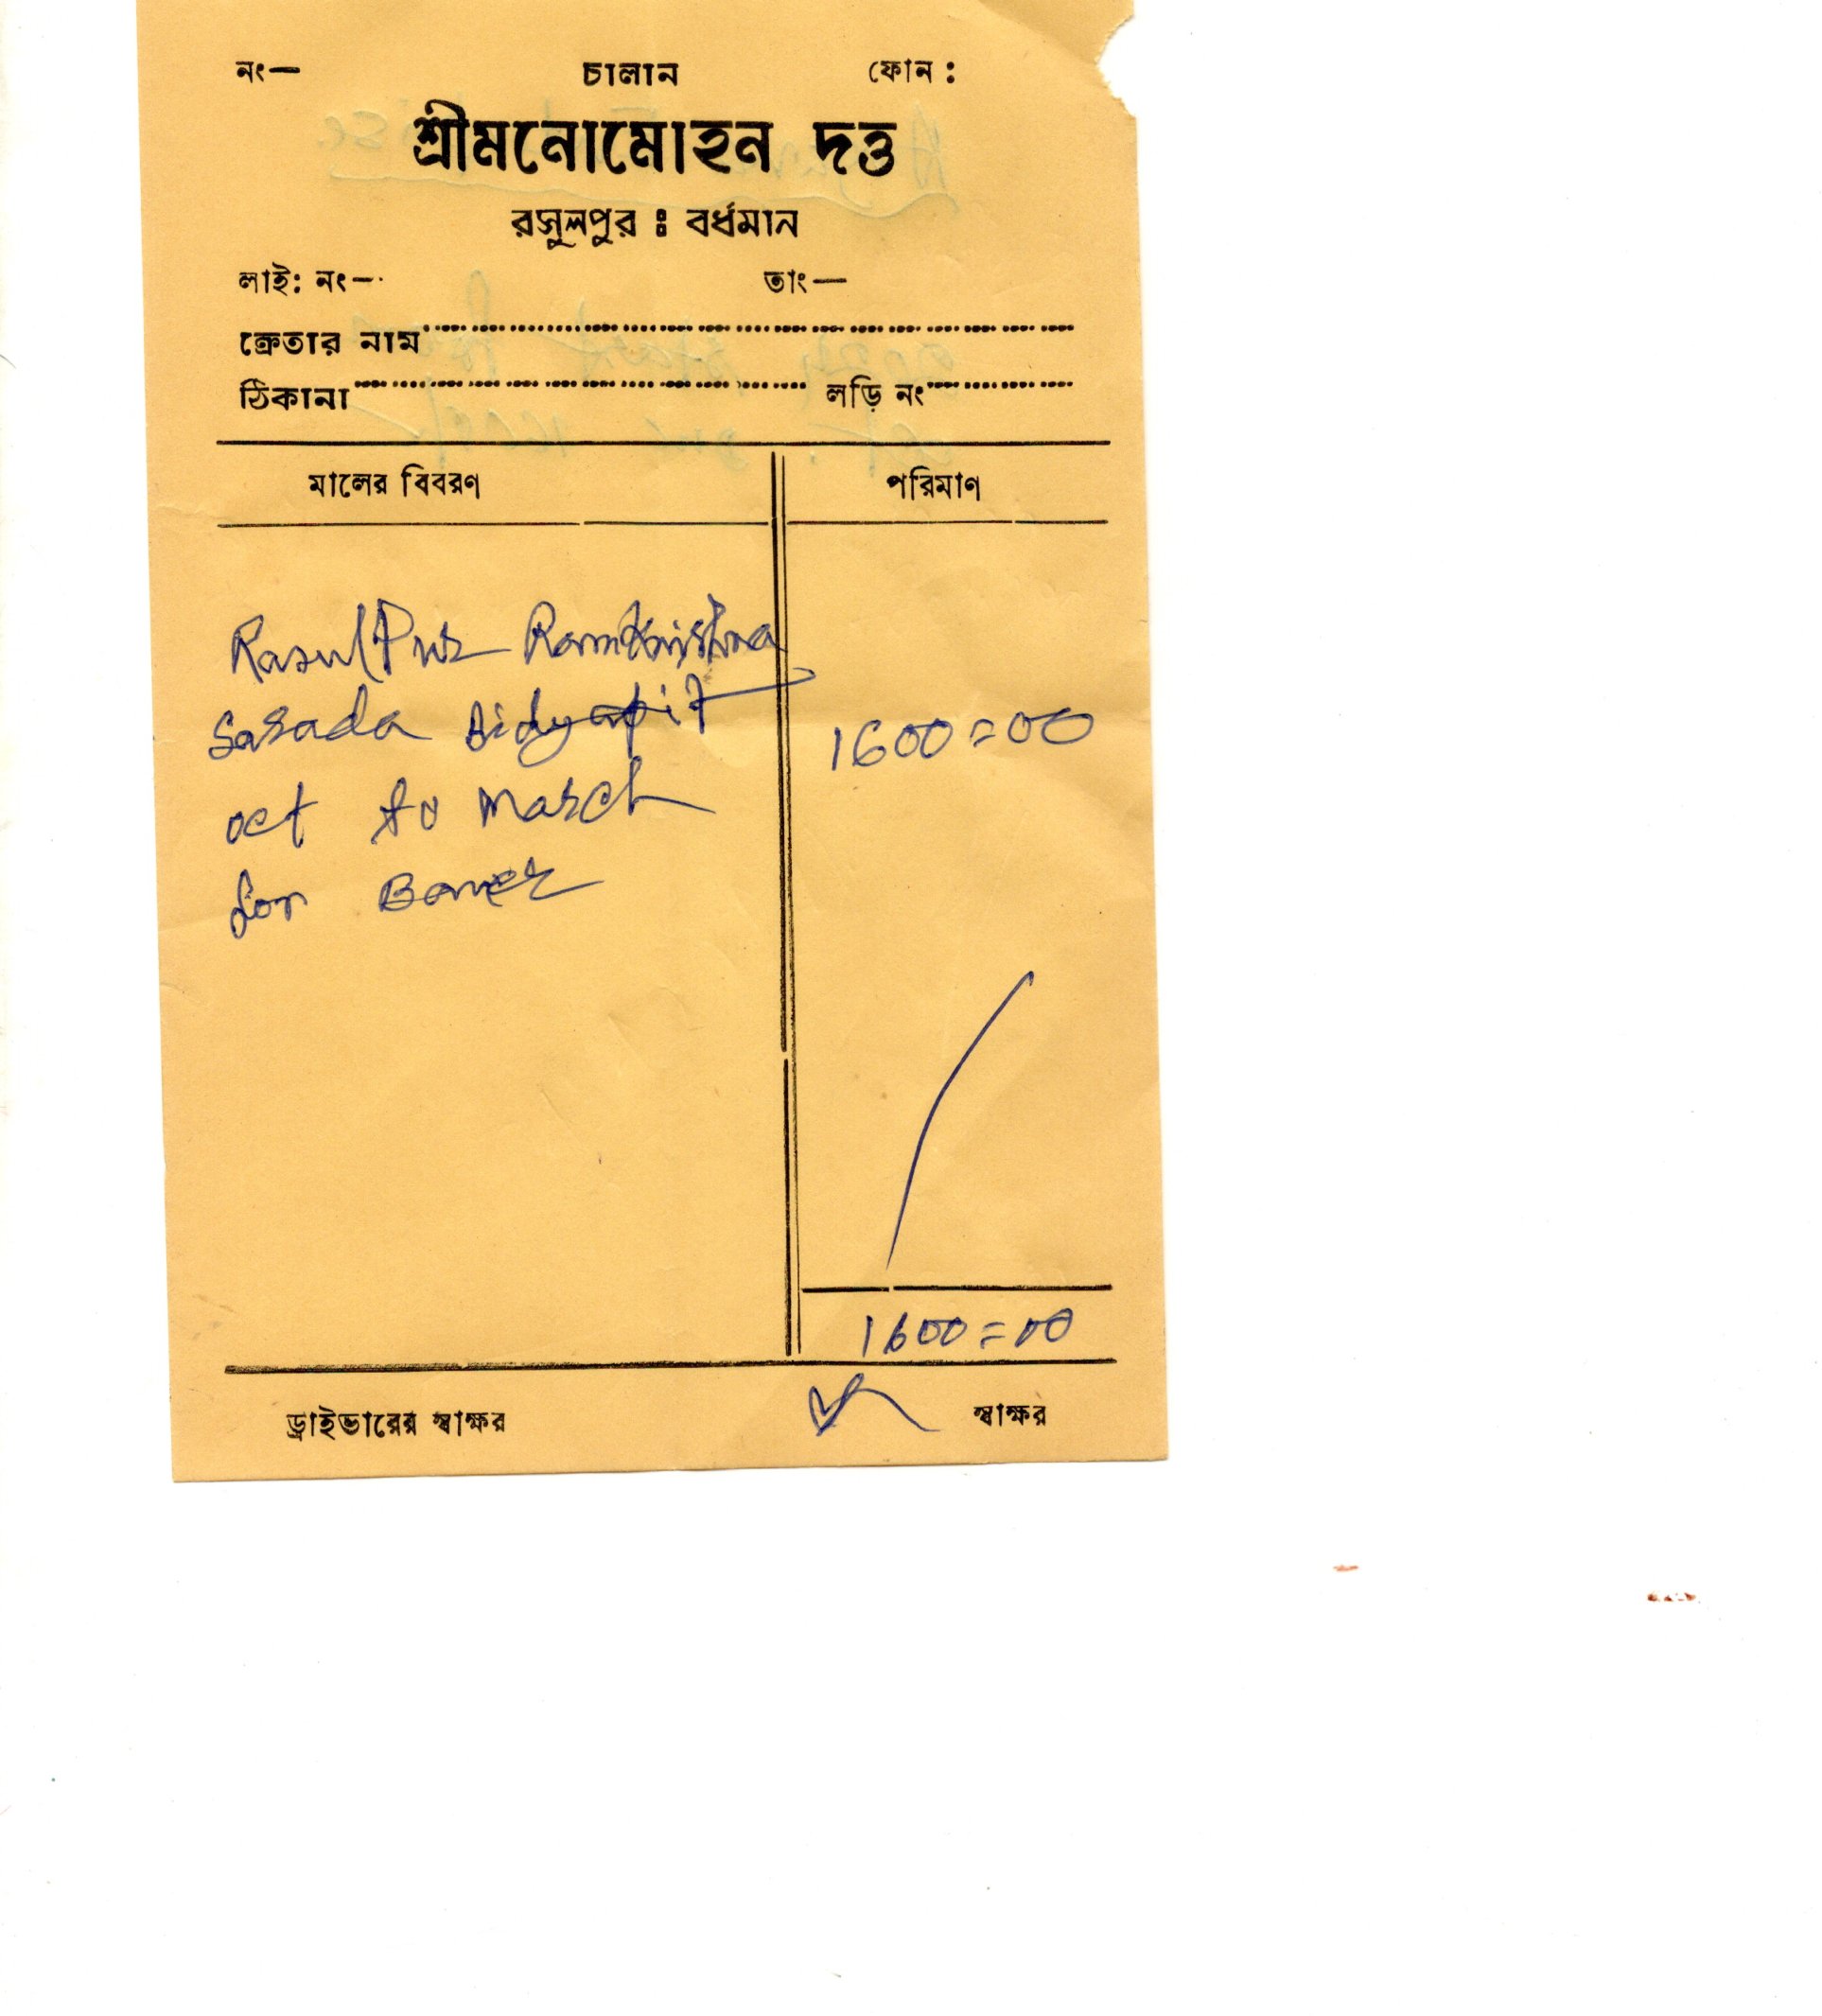 নং— চালান ফোন :
শ্রীমনোমোহন দত্ত
রসুলপুর : বর্ধমান
লাই: নং— তাং—
ক্রেতার নাম
ঠিকানা লড়ি নং
মালের বিবরণ পরিমাণ
RasulPur Ramkrishna
Sarada Bidyapit 1600=00
oct to March
for
1600=00
ড্রাইভারের স্বাক্ষর স্বাক্ষর